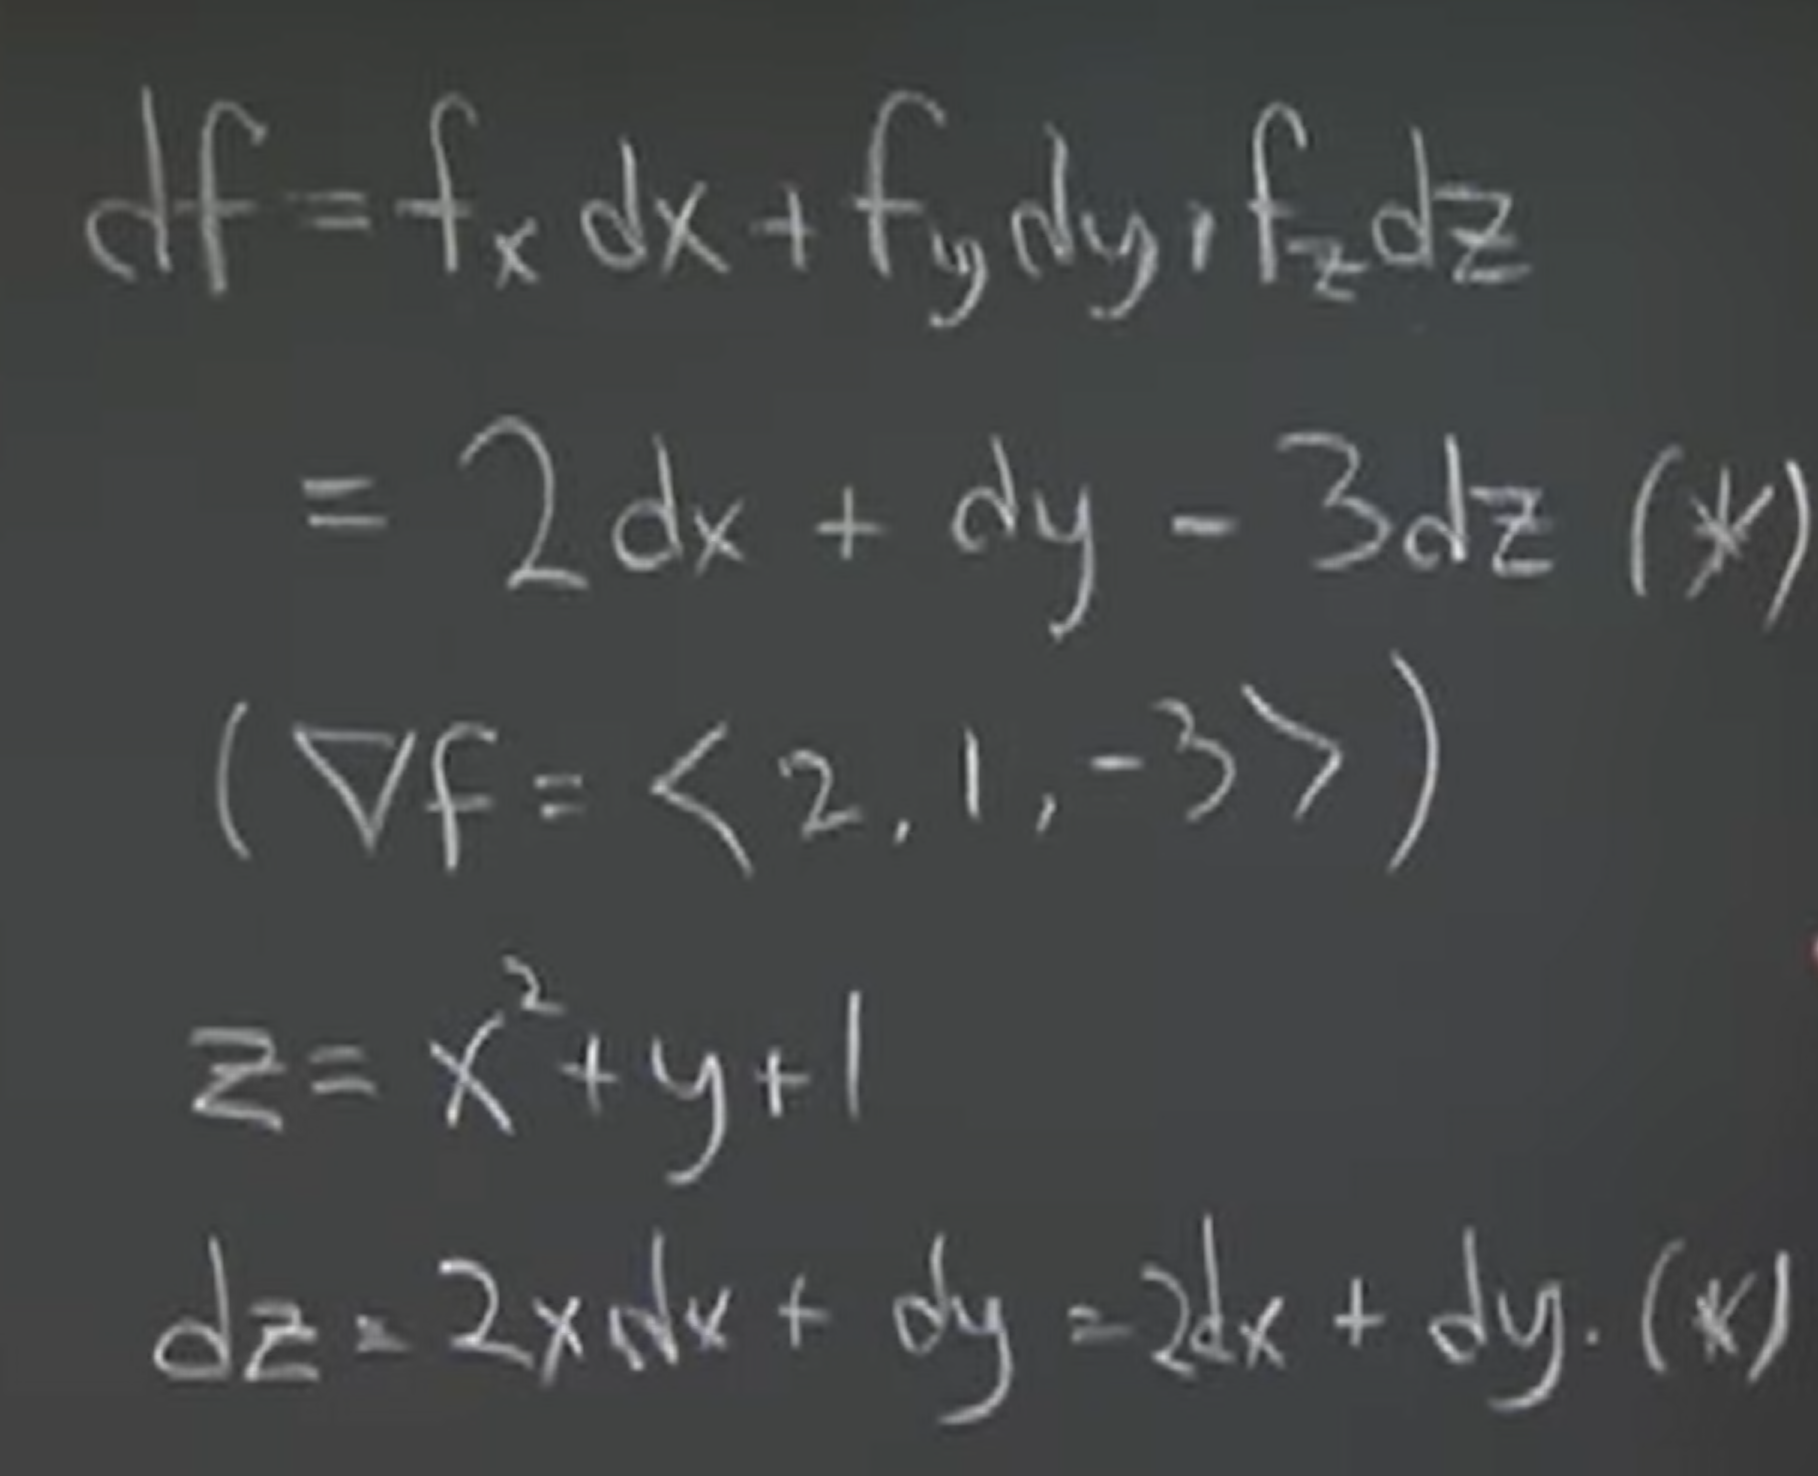 df = fₓ dx + f_y dy + f_z dz
= 2dx + dy - 3dz (*)
(∇f = <2, 1, -3>)
z = x² + y + 1
dz = 2x dx + dy = 2dx + dy. (*)